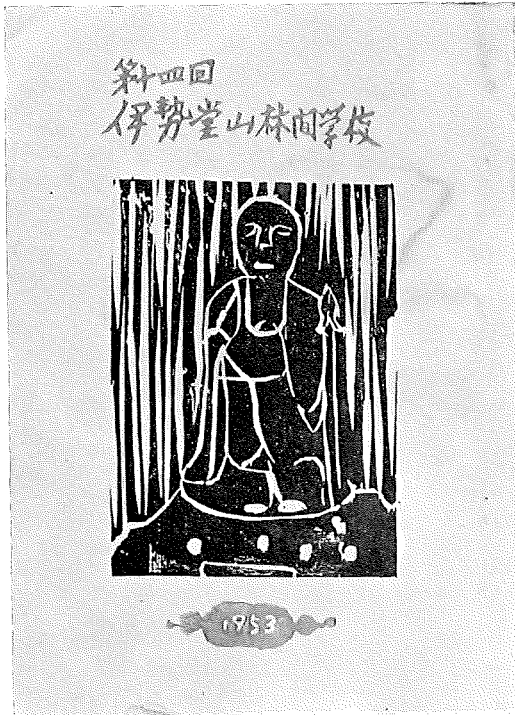 第十四回
伊勢堂山林間学校
1953